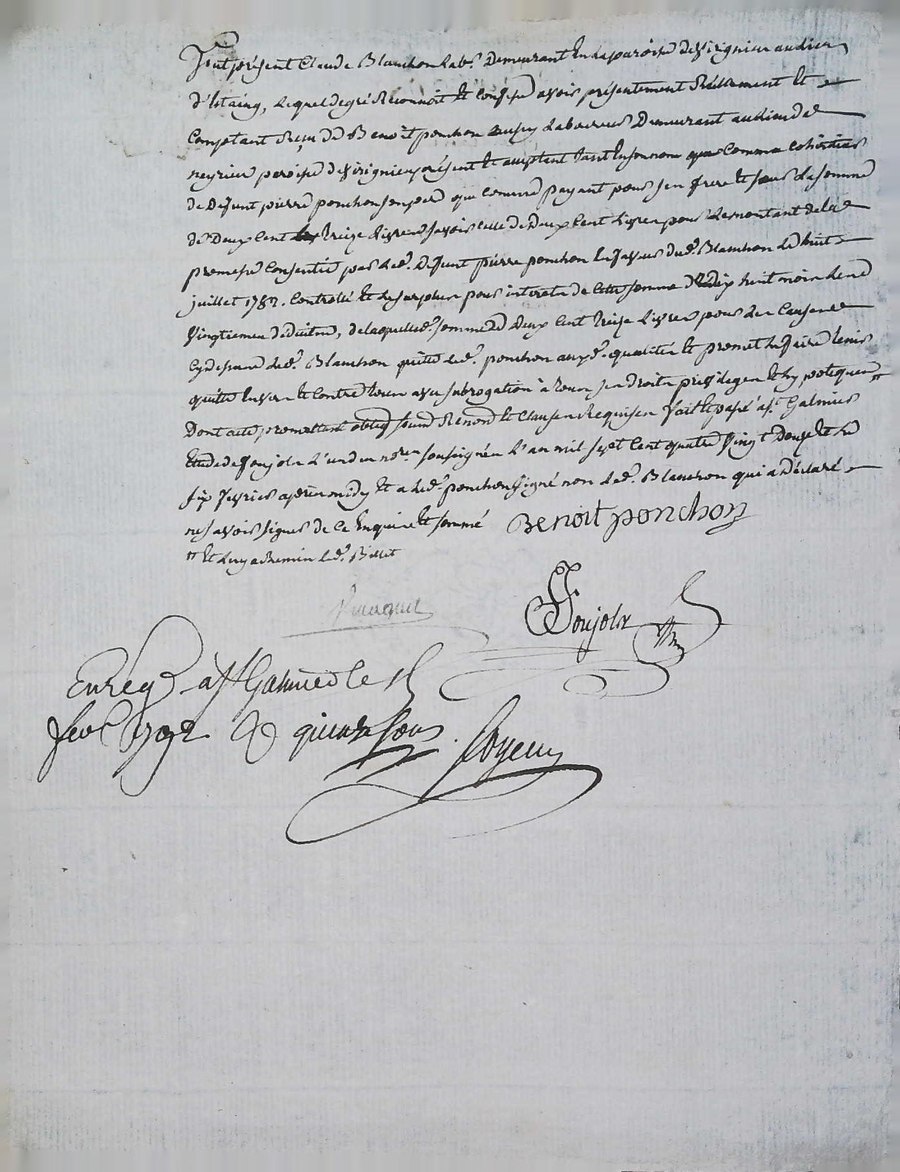 Fut présent Claude Blanchon lab.r demeurant en la paroisse de virignieu au lieu
d'Etaing, lequel de gré Reconnoit Et Confesse avoir présentement Réellement Et
Comptant Reçu de Benoît ponchon aussy Laboureur Demeurant au lieu de
neyrieu paroisse de virignieu présent Et acceptant tant En son nom que Comme Cohéritier
de Defunt pierre ponchon son pere que comme payant pour son frere Et sœur La somme
de Deux Cent treize Livres savoir celle de Deux Cent Livres pour Le montant de la
promesse Consentie par Led. Defunt pierre ponchon En faveur dud. Blanchon Le huit
juillet 1787. Controllé Et Le surplus pour interets de Cette somme de dix huit mois
Vingtieme déduit, de laquelle somme de Deux Cent treize Livres pour les Causes
Cy dessus Led. Blanchon quitte Led. ponchon aux d. qualités Et promet Le faire tenir
quitte Envers Et Contre tous avec subrogation à tous ses Droits privileges Et hypotèques ††
Dont acte promettant oblig. soum. Renon. Et Clauses Requises fait Et passé a st Galmier
Etude de Soujolx L'un des no.res soussignés L'an mil sept Cent quatre vingt Douze Et Le
six fevrier après midy Et a Led. ponchon signé non Led. Blanchon qui a déclaré
ne savoir signer de Ce Enquis Et sommé
†† Et Luy a Remis Led. Billet
Benoit ponchon
Soujolx
Enreg. a st Galmier le
fev. 1792 R quinze sous